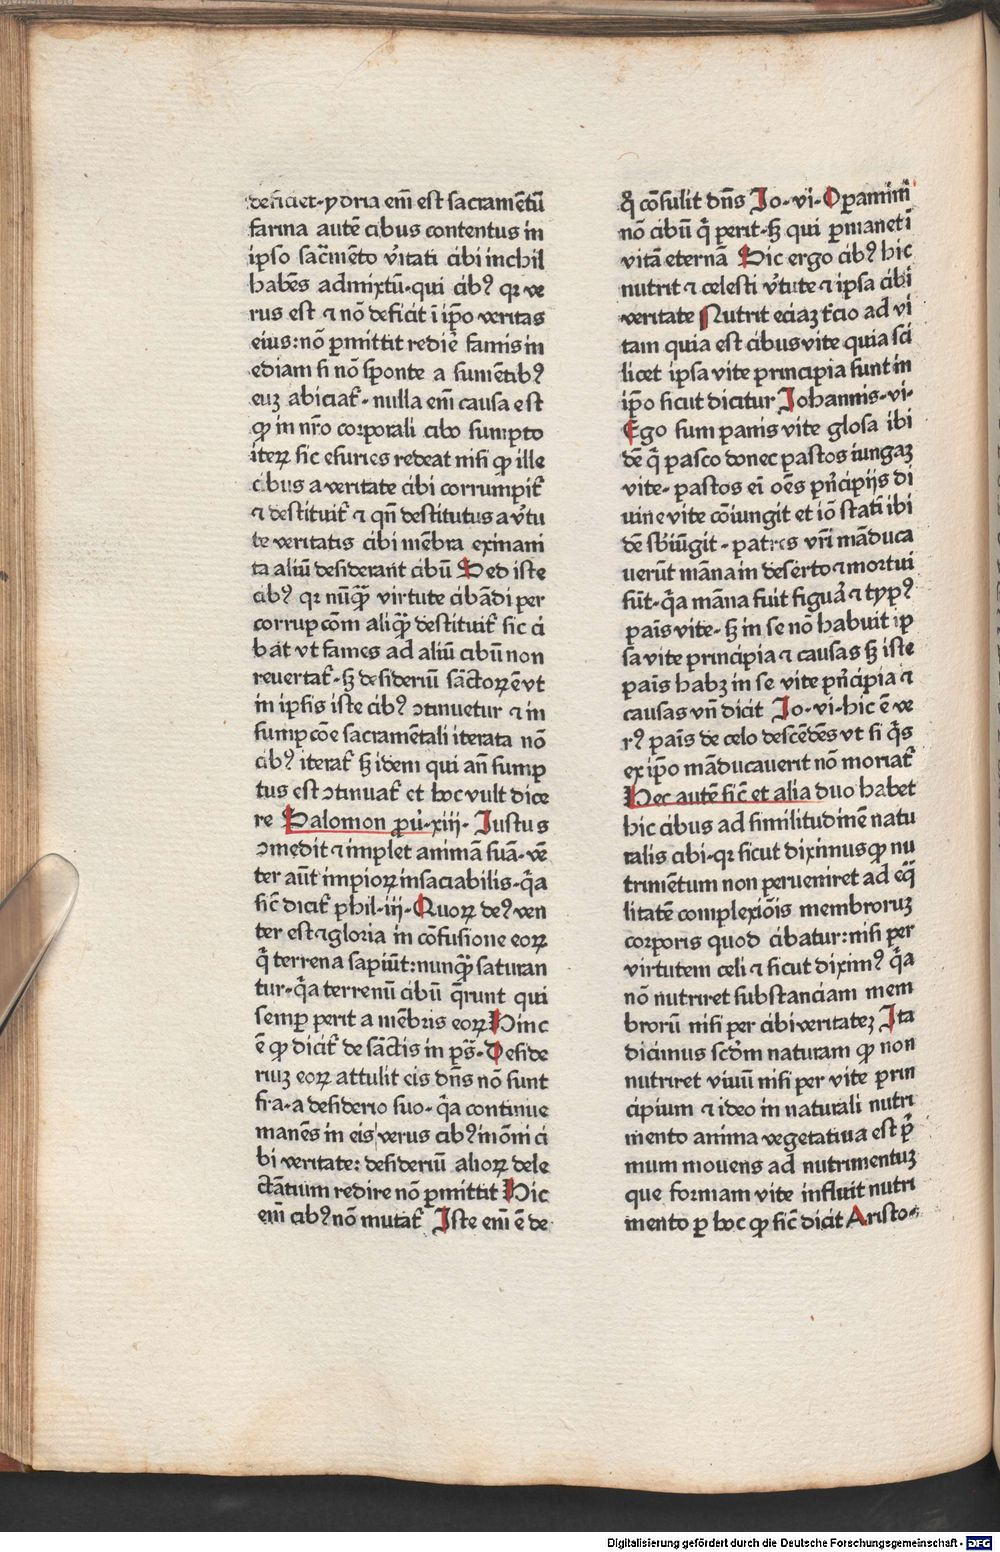 deficiet·ydria em̄ est sacramētū
farina autē cibus contentus in
ipso sac͛mēto v͛itati cibi inchil
habēs admixtū·qui cibꝰ qr ve
rus est ⁊ nō deficit ī ip̄o veritas
eius:nō ꝑmittit rediē famis in
ediam si nō sponte a sumētibꝰ
euꝫ abiciat᷑·nulla em̄ causa est
ꝙ in nr̄o corporali cibo sumpto
iteꝝ sic esuries redeat nisi ꝙ ille
cibus a veritate cibi corrumpit᷑
⁊ destituit᷑ ⁊ qn̄ destitutus a v͛tu
te veritatis cibi mēbra exinani
ta aliū desiderant cibū Sed iste
cibꝰ qr nūꝙ̄ virtute cibādi per
corrupcōm aliꝙ̄ destituit᷑ sic ci
bāt vt fames ad aliū cibū non
reuertat᷑·sꝫ desideriū sāctoꝝ ē vt
in ipsis iste cibꝰ ꝯtinuetur ⁊ in
sumpcōe sacramētali iterata nō
cibꝰ iterat᷑ sꝫ idem qui an̄ sump
tus est ꝯtinuat᷑ et hoc vult dice
re Salomon ꝓu͛·xiii· Justus
ꝯmedit ⁊ implet animā suā·vē
ter aūt impioꝝ insaciabilis·q̄a
sic̄ dicit᷑ phil·iij·Quoꝝ deꝰ ven
ter est ⁊ gloria in cōfusione eoꝝ
q̄ terrena sapiūt:nunꝙ̄ saturan
tur·q̄a terrenū cibū q̄runt qui
semꝑ perit a mēbris eoꝝ Hinc
ē ꝙ dicit᷑ de sāctis in ps̄·Deside
riuꝫ eoꝝ attulit eis dn̄s nō sunt
fra·a desiderio suo·q̄a continue
manēs in eis verus cibꝰ in ōni ci
bi veritate: desideriū alioꝝ dele
ctātium redire nō ꝑmittit Hic
em̄ cibꝰ nō mutat᷑ Iste em̄ ē de
q̄ cōsulit dn̄s Jo·vi·Operamini
nō cibū q̄ perit·sꝫ qui ꝑmanet ī
vitā eternā Hic ergo cibꝰ hic
nutrit ⁊ celesti v͛tute ⁊ ipsa cibi
veritate Nutrit eciaꝫ t͛cio ad vi
tam quia est cibus vite quia sci
licet ipsa vite principia sunt in
ip̄o sicut dicitur Johannis·vi·
Ego sum panis vite glosa ibi
dē q̄ pasco donec pastos iungaꝫ
vite·pastos ei͛ oēs pn̄cipijs di
uine vite cōiungit et iō statī ibi
dē sbiūgit·patres vr̄i māduca
uerūt māna in deserto ⁊ mortui
sūt·q̄a māna fuit figua̔ ⁊ typꝰ
pāis vite·sꝫ in se nō habuit ip
sa vite principia ⁊ causas sꝫ iste
pāis habꝫ in se vite pn̄cipia ⁊
causas vn̄ dicit Jo·vi·hic ē ve
rꝰ pāis de celo descēdēs vt si q̄s
ex ip̄o māducauerit nō moriat᷑
Hec autē sic̄ et alia duo habet
hic cibus ad similitudinē natu
ralis cibi·qr sicut diximus ꝙ nu
trimentum non perueniret ad eq̄
litatē complexiōis membroruꝫ
corporis quod cibatur:nisi per
virtutem celi ⁊ sicut diximꝰ q̄a
nō nutriret substanciam mem
brorū nisi per cibi veritateꝫ Ita
dicimus scd̄m naturam ꝙ non
nutriret viuū nisi per vite prin
cipium ⁊ ideo in naturali nutri
mento anima vegetatiua est p̄
mum mouens ad nutrimentuꝫ
que formam vite influit nutri
mento ꝑ hoc ꝙ sic̄ dicit Aristo-
Digitalisierung gefördert durch die Deutsche Forschungsgemeinschaft - DFG